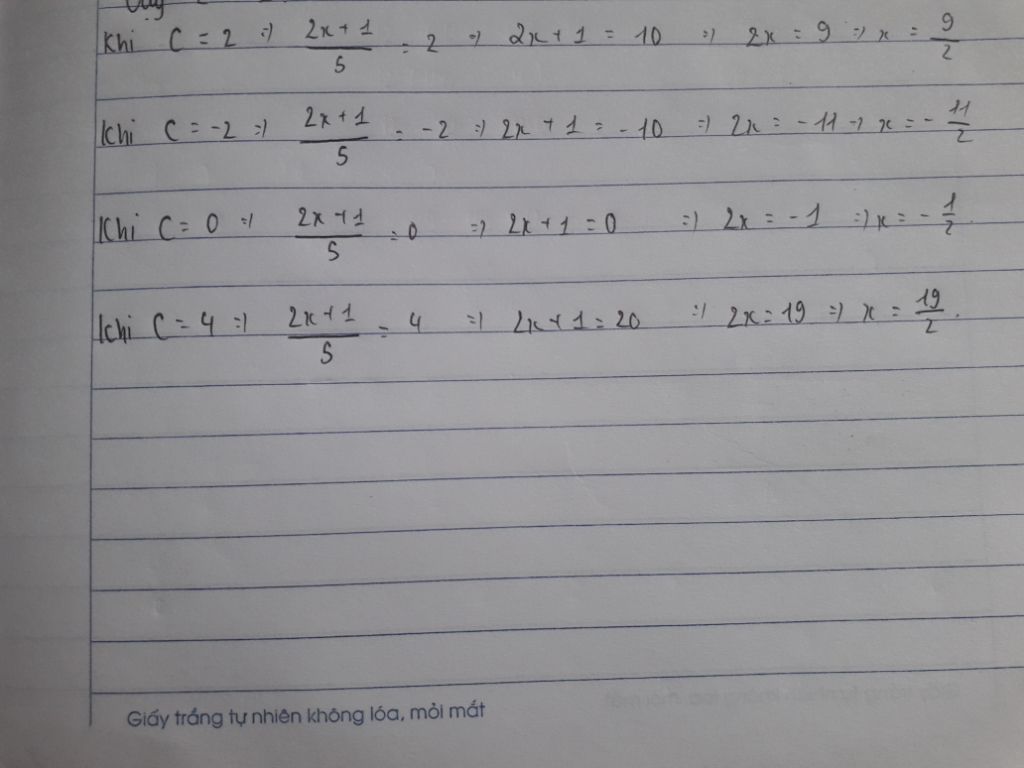 Khi C = 2 => \frac{2x+1}{5} = 2 => 2x + 1 = 10 => 2x = 9 => x = \frac{9}{2}
Khi C = -2 => \frac{2x+1}{5} = -2 => 2x + 1 = -10 => 2x = -11 => x = -\frac{11}{2}
Khi C = 0 => \frac{2x+1}{5} = 0 => 2x + 1 = 0 => 2x = -1 => x = -\frac{1}{2}.
Khi C = 4 => \frac{2x+1}{5} = 4 => 2x + 1 = 20 => 2x = 19 => x = \frac{19}{2}.
Giấy trắng tự nhiên không lóa, mỏi mắt